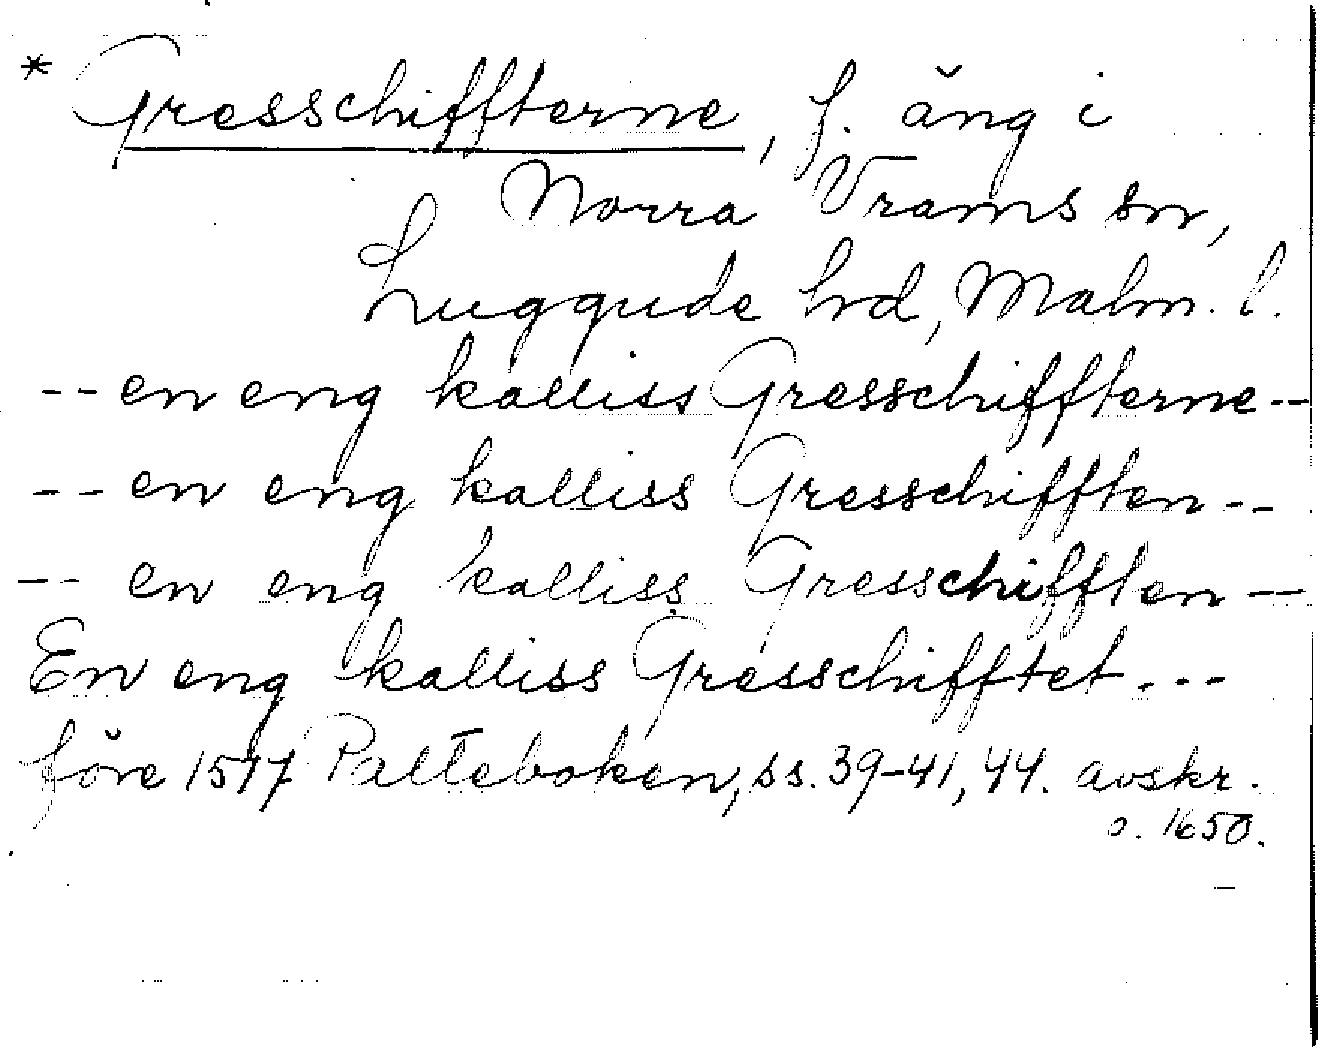 * Gresschiffterne, f. äng i
Norra Vrams sn,
Luggude hd, Malm. l.
-- en eng kalliss Gresschiffterne --
-- en eng kalliss Gresschifften --
-- en eng kalliss Gresschifften --
En eng kalliss Gresschifftet ---
före 1577 Palteboken, ss. 39-41, 44. avskr.
o. 1650.